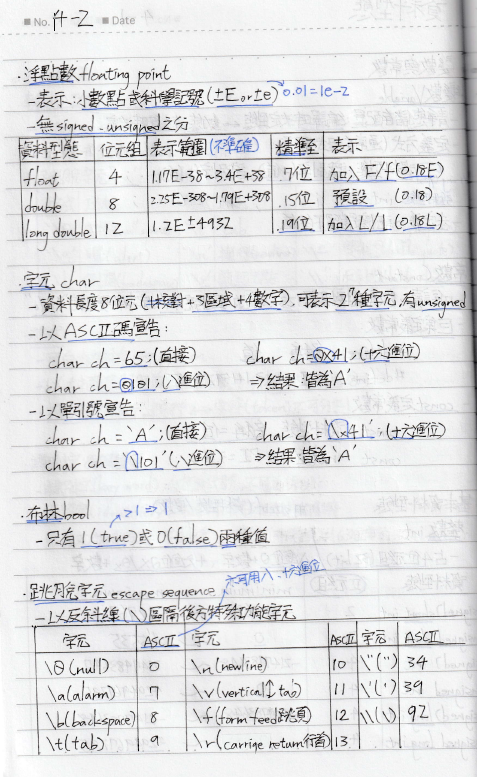 ■ No. 4-2 ■ Date
·浮點數 floating point
-表示:小數點或科學記號(±E or ±e) 0.01=1e-2
-無signed、unsigned之分
資料型態 位元組 表示範圍(不準確) 精準至 表示
float 4 1.17E-38~3.4E+38 7位 加入F/f(0.18F)
double 8 2.25E-308~1.79E+308 15位 預設 (0.18)
long double 12 1.2E±4932 19位 加入L/l(0.18L)
·字元 char
-資料長度8位元(1核對+3區域+4數字),可表示2⁷種字元,有unsigned
-以ASCII碼宣告:
char ch=65;(直接) char ch=0x41;(十六進位)
char ch=0101;(八進位) ⇒結果:皆為'A'
-以單引號宣告:
char ch='A';(直接) char ch='\x41';(十六進位)
char ch='\101'(八進位) ⇒結果:皆為'A'
·布林bool
>1⇒1
-只有1(true)或0(false)兩種值
·跳脫字元 escape sequence
亦可用八、十六進位
-以反斜線(\)區隔後方特殊功能字元
字元 ASCII 字元 ASCII 字元 ASCII
\0(null) 0 \n(newline) 10 \"(") 34
\a(alarm) 7 \v(vertical↕tab) 11 \'(') 39
\b(backspace) 8 \f(form feed跳頁) 12 \\(\) 92
\t(tab) 9 \r(carrige return行首) 13